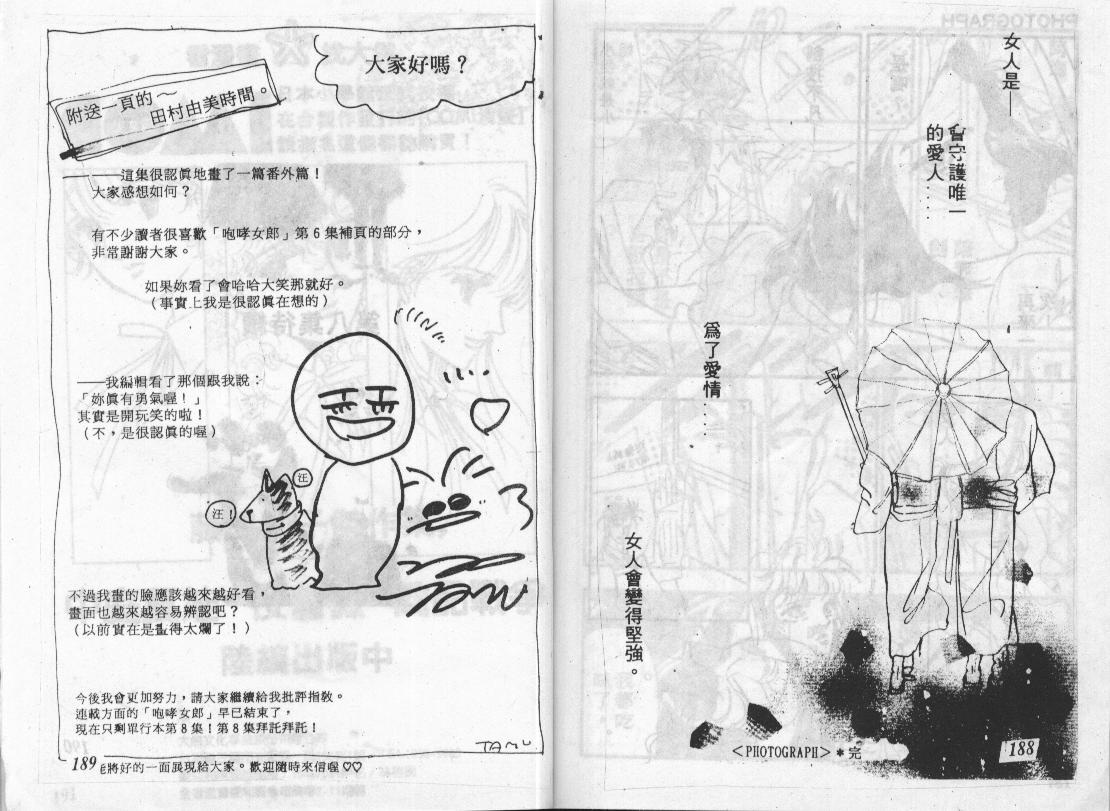 女人是—
會守護唯一
的愛人.....
為了愛情....
女人會變得堅強。
<PHOTOGRAPH>＊完
188
大家好嗎？
附送一頁的～
田村由美時間。
——這集很認真地畫了一篇番外篇！
大家感想如何？
有不少讀者很喜歡「咆哮女郎」第6集補頁的部分，
非常謝謝大家。
如果妳看了會哈哈大笑那就好。
（事實上我是很認真在想的）
——我編輯看了那個跟我說：
「妳真有勇氣喔！」
其實是開玩笑的啦！
（不，是很認真的喔）
汪
汪！
不過我畫的臉應該越來越好看，
畫面也越來越容易辨認吧？
（以前實在是畫得太爛了！）
今後我會更加努力，請大家繼續給我批評指教。
連載方面的「咆哮女郎」早已結束了，
現在只剩單行本第8集！第8集拜託拜託！
TAMU
189
將好的一面展現給大家。歡迎隨時來信喔♡♡